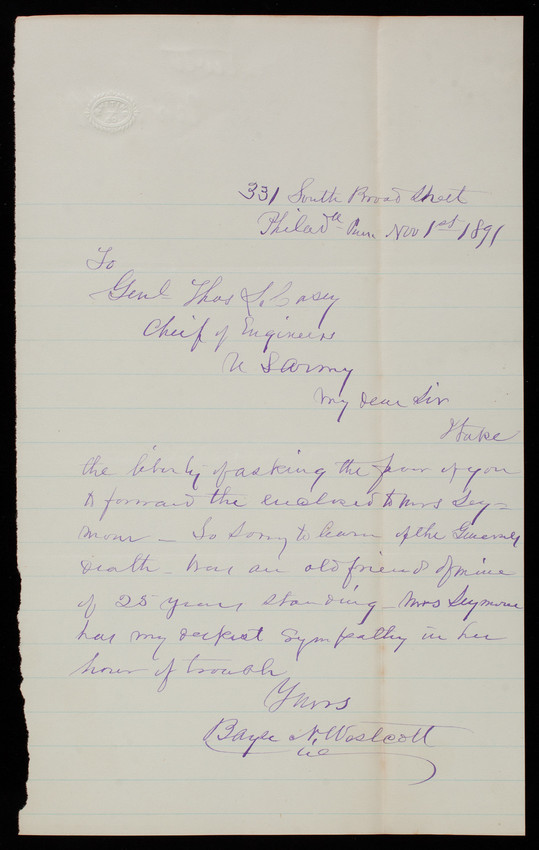 331 South Broad Street
Philada Penn Nov 1st 1891
To
Genl Thos L. Casey
Cheif of Engineers
U S Army
My dear Sir
I take
the liberty of asking the favor of you
to forward the enclosed to Mrs Sey=
mour - So Sorry to learn of the Generals
death - Was an old friend of mine
of 25 years standing - Mrs Seymour
has my deepest Sympathy in her
hour of trouble
Yours
N. Westcott